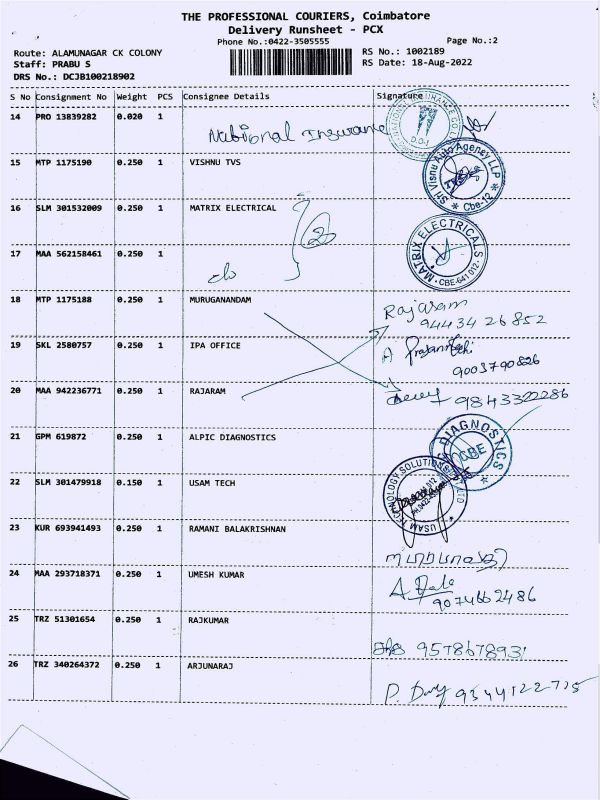 THE PROFESSIONAL COURIERS, Coimbatore
Delivery Runsheet - PCX
Phone No.:0422-3505555
Page No.:2
Route: ALAMUNAGAR CK COLONY
RS No.: 1002189
Staff: PRABU S
RS Date: 18-Aug-2022
DRS No.: DCJB100218902
S No Consignment No Weight PCS Consignee Details Signature
14 PRO 13839282 0.020 1 National Insurance
D.O-1
15 MTP 1175190 0.250 1 VISHNU TVS
Sri Visnu Auto Agency LLP
* Cbe-12 *
16 SLM 301532009 0.250 1 MATRIX ELECTRICAL
2
MATRIX ELECTRICALS
CBE-641 012
17 MAA 562158461 0.250 1
18 MTP 1175188 0.250 1 MURUGANANDAM Rajaram
94434 26852
19 SKL 2580757 0.250 1 IPA OFFICE
9003790826
20 MAA 942236771 0.250 1 RAJARAM 9843322286
21 GPM 619872 0.250 1 ALPIC DIAGNOSTICS
DIAGNOSTICS
CBE
22 SLM 301479918 0.150 1 USAM TECH
USAM TECHNOLOGY SOLUTIONS
LTD
23 KUR 693941493 0.250 1 RAMANI BALAKRISHNAN
24 MAA 293718371 0.250 1 UMESH KUMAR
9074662486
25 TRZ 51301654 0.250 1 RAJKUMAR
9578678931
26 TRZ 340264372 0.250 1 ARJUNARAJ
9344122775